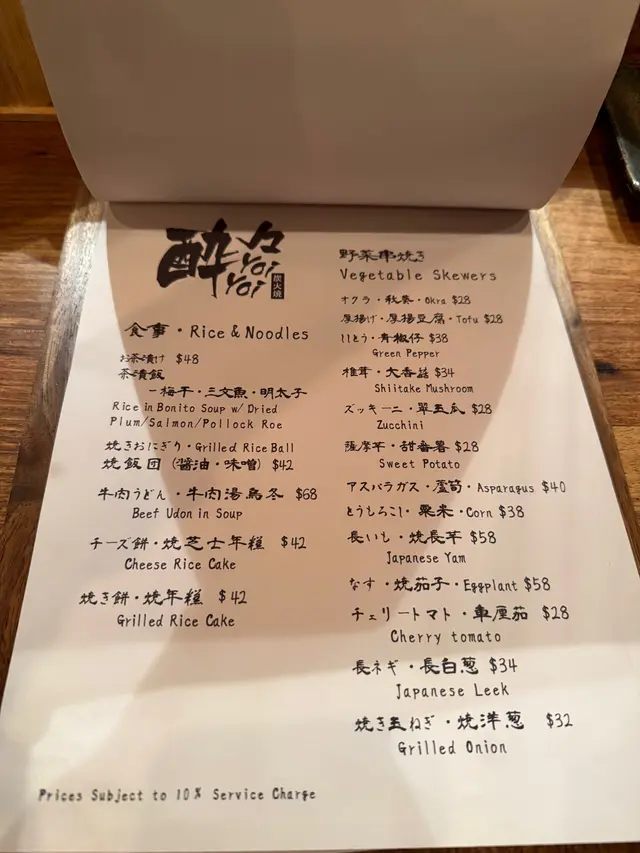 酔々
Yoi
Yoi
炭火焼
食事・Rice & Noodles
お茶漬け $48
茶漬飯
－梅干・三文魚・明太子
Rice in Bonito Soup w/ Dried
Plum/Salmon/Pollock Roe
焼きおにぎり・Grilled Rice Ball
焼飯団（醤油・味噌）$42
牛肉うどん・牛肉湯烏冬 $68
Beef Udon in Soup
チーズ餅・焼芝士年糕 $42
Cheese Rice Cake
焼き餅・焼年糕 $42
Grilled Rice Cake
野菜串焼き
Vegetable Skewers
オクラ・秋葵・Okra $28
厚揚げ・厚揚豆腐・Tofu $28
ししとう・青椒仔 $38
Green Pepper
椎茸・大香菇 $34
Shiitake Mushroom
ズッキーニ・翠玉瓜 $28
Zucchini
薩摩芋・甜番薯 $28
Sweet Potato
アスパラガス・蘆筍・Asparagus $40
とうもろこし・粟米・Corn $38
長いも・焼長芋 $58
Japanese Yam
なす・焼茄子・Eggplant $58
チェリートマト・車厘茄 $28
Cherry tomato
長ネギ・長白葱 $34
Japanese Leek
焼き玉ねぎ・焼洋葱 $32
Grilled Onion
Prices Subject to 10% Service Charge